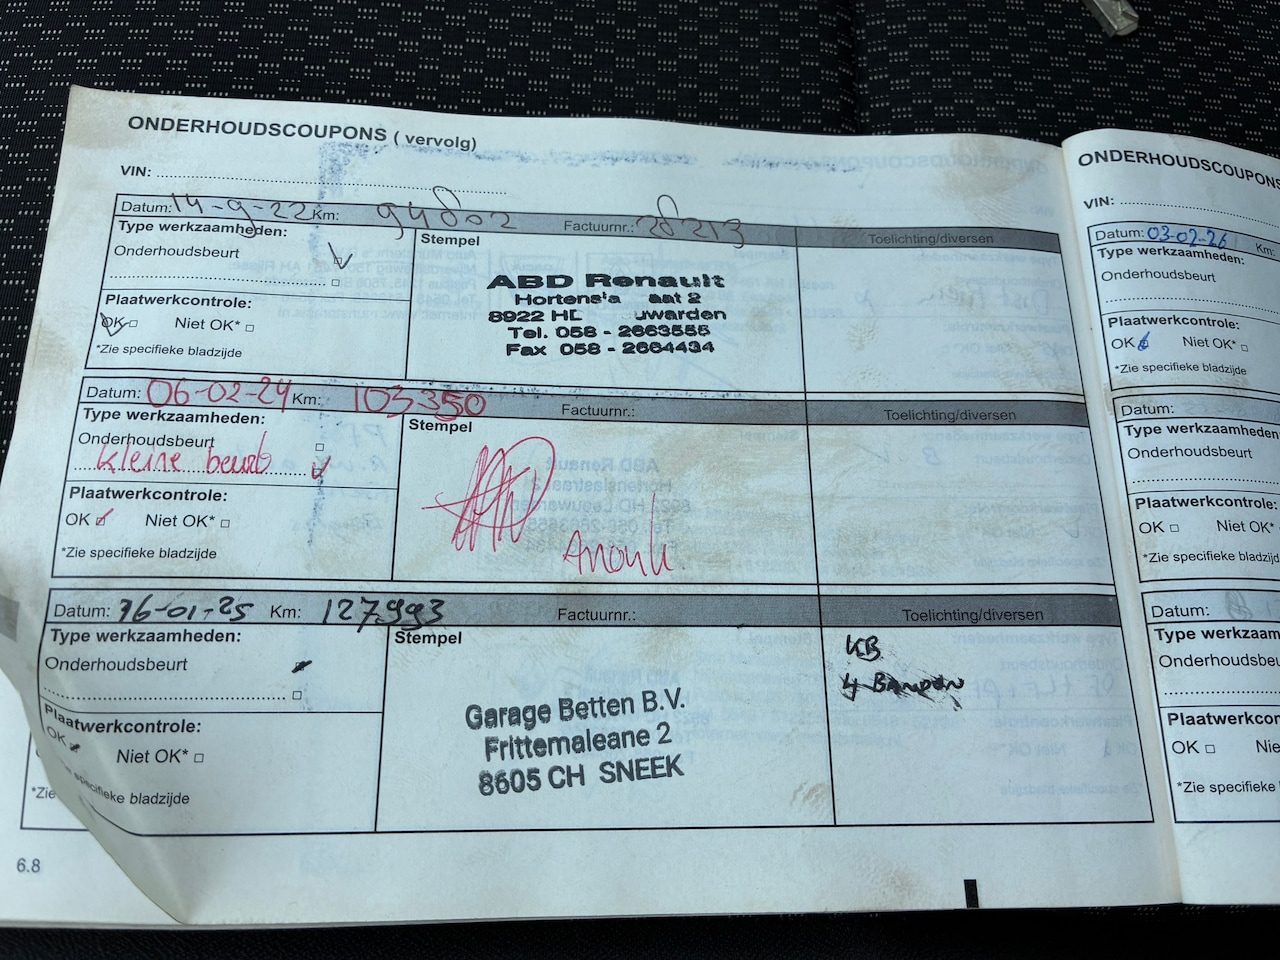 ONDERHOUDSCOUPONS ( vervolg)
VIN:
Datum: 14-9-22 Km: 94802 Factuurnr.: 28213
Type werkzaamheden:
Stempel
Toelichting/diversen
Onderhoudsbeurt
ABD Renault
Hortens a aat 2
8922 HD uwarden
Tel. 058 - 2663555
Fax 058 - 2664434
Plaatwerkcontrole:
OK Niet OK*
*Zie specifieke bladzijde
Datum: 06-02-24 Km: 103350 Factuurnr.:
Type werkzaamheden:
Stempel
Toelichting/diversen
Onderhoudsbeurt
kleine beurt
Plaatwerkcontrole:
OK Niet OK*
Anouk
*Zie specifieke bladzijde
Datum: 16-01-25 Km: 127993 Factuurnr.:
Type werkzaamheden:
Stempel
Toelichting/diversen
Onderhoudsbeurt
KB
4 Banden
Garage Betten B.V.
Frittemaleane 2
8605 CH SNEEK
Plaatwerkcontrole:
OK Niet OK*
*Zie specifieke bladzijde
6.8
ONDERHOUDSCOUPONS
VIN:
Datum: 03-02-26 Km:
Type werkzaamheden:
Onderhoudsbeurt
Plaatwerkcontrole:
OK Niet OK*
*Zie specifieke bladzijde
Datum:
Type werkzaamheden
Onderhoudsbeurt
Plaatwerkcontrole:
OK Niet OK*
*Zie specifieke bladzijd
Datum:
Type werkzaam
Onderhoudsbeu
Plaatwerkcon
OK Nie
*Zie specifieke b